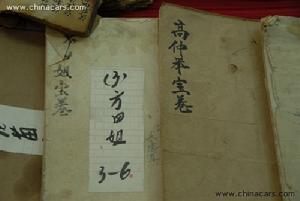 www.chinacars.com
姐宝卷
(3)方四姐
3-6.
高仲举宝卷
www.chinacars.com